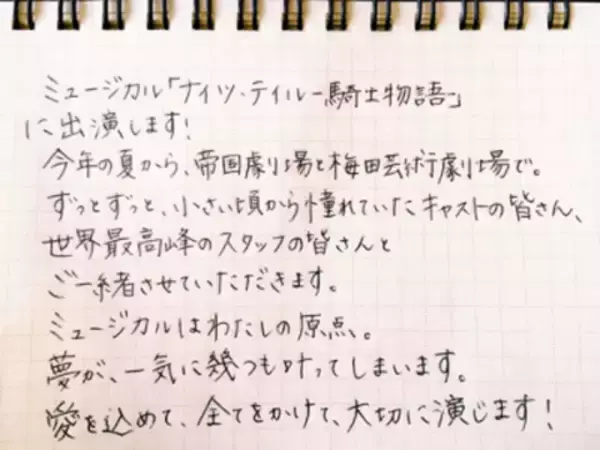 ミュージカル「ナイツ・テイルー騎士物語ー」
に出演します!
今年の夏から、帝国劇場と梅田芸術劇場で。
ずっとずっと、小さい頃から憧れていたキャストの皆さん、
世界最高峰のスタッフの皆さんと
ご一緒させていただきます。
ミュージカルはわたしの原点。
夢が、一気に幾つも叶ってしまいます。
愛を込めて、全てをかけて、大切に演じます!